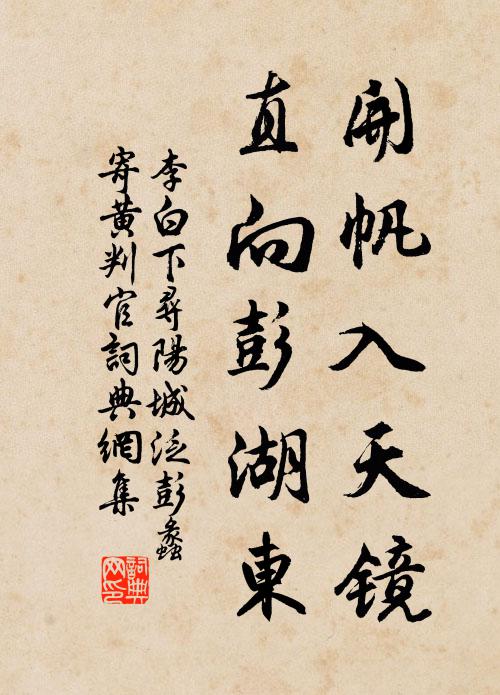 開帆入天镜
直向彭湖東
李白下尋陽城泛彭蠡
寄黄判官詞典網集
詞典
网印